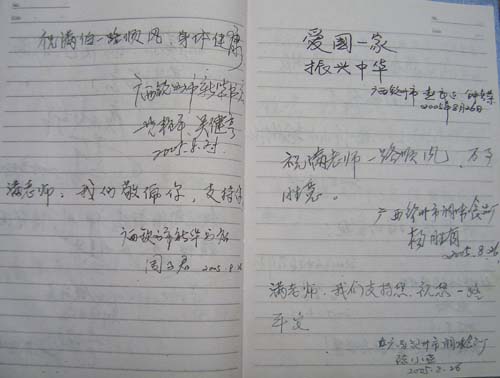 祝满伯一路顺风,身体健康
广西钦州市新华书店
吴健
2005.8.25
满老师,我们敬佩你,支持你
广西钦州市新华书店
2005.8.26
爱国一家
振兴中华
广西钦州市
2005年8月26日
祝满老师一路顺风,万事
胜意。
广西钦州市调味食品厂
杨胜
2005.8.26
满老师,我们支持您,祝您一路
平安
广西钦州市调味食品厂
2005.8.26